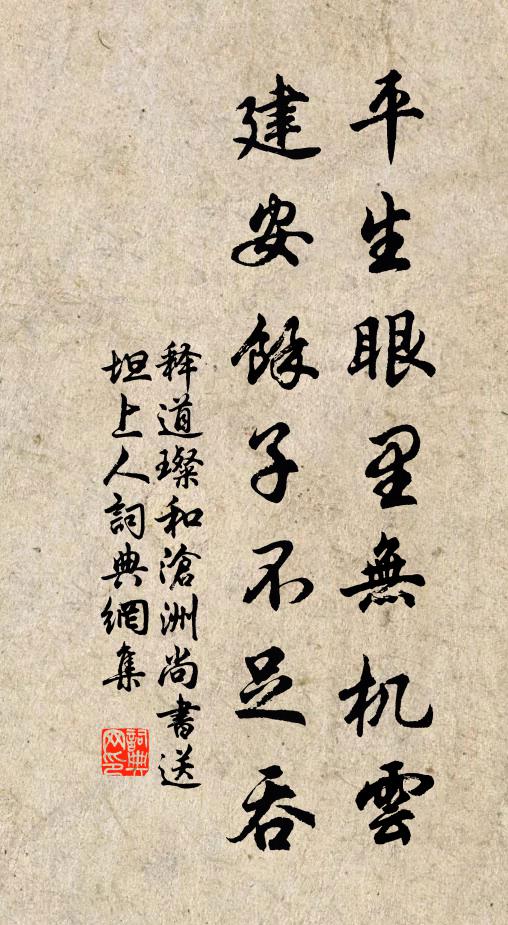 平生眼里無机雲
建安餘子不足吞
释道璨和滄洲尚書送
坦上人詞典網集
詞典网印